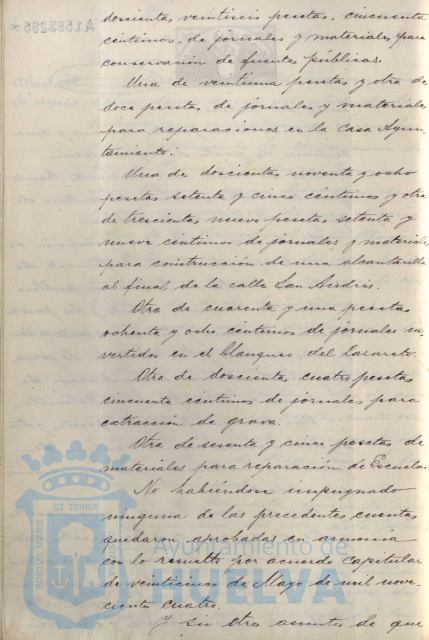 doscientas veintiseis pesetas, cincuenta
centimos, de jornales y materiales para
conservacion de fuentes públicas.
Una de veintiuna pesetas y otra de
doce pesetas de jornales y materiales
para reparaciones en la Casa Ayun-
tamiento.
Una de doscientas noventa y ocho
pesetas setenta y cinco céntimos y otra
de trescientas nueve pesetas setenta y
nueve centimos de jornales y materiales
para construcción de una alcantarilla
al final de la calle San Andrés.
Otra de cuarenta y una pesetas
ochenta y ocho centimos de jornales in-
vertidos en el blanqueo del Lazareto.
Otra de doscientas cuatro pesetas
cincuenta céntimos de jornales para
extracción de grava.
Otra de sesenta y cinco pesetas de
materiales para reparación de Escuelas.
No habiéndose impugnado
ninguna de las precedentes cuentas
quedaron aprobadas en armonia
con lo resuelto por acuerdo capitular
de veinticinco de Mayo de mil nove-
cientos cuatro.
Y sin otros asuntos de que
Ayuntamiento de
HUELVA